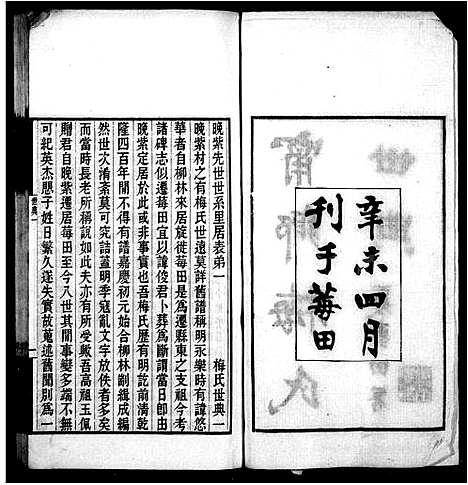 辛未四月
刊于莓田
晚紫先世世系里居表弟一　梅氏世典一
晚紫村之有梅氏世遠莫詳舊譜稱明永樂時有諱悠
華者自柳林來居旋徙莓田是爲遷縣東之支祖今考
諸碑志似遷莓田宜以諱俊君卜葬爲斷謂當日卽由
晚紫定居於此或非事實也吾梅氏歷有明訖前清乾
隆四百年閒不得有譜嘉慶初元始合柳林剏緝成編
然世次淆紊莫可究詰蓋明季寇亂文字放佚者多矣
而當時長老所稱說如此夫亦有所受歟吾高祖玉佩
贈君自晚紫遷居莓田至今八世其閒事變多端不無
可紀英杰懇子姓日繁久遂失實故蒐述舊聞別爲一
世典一